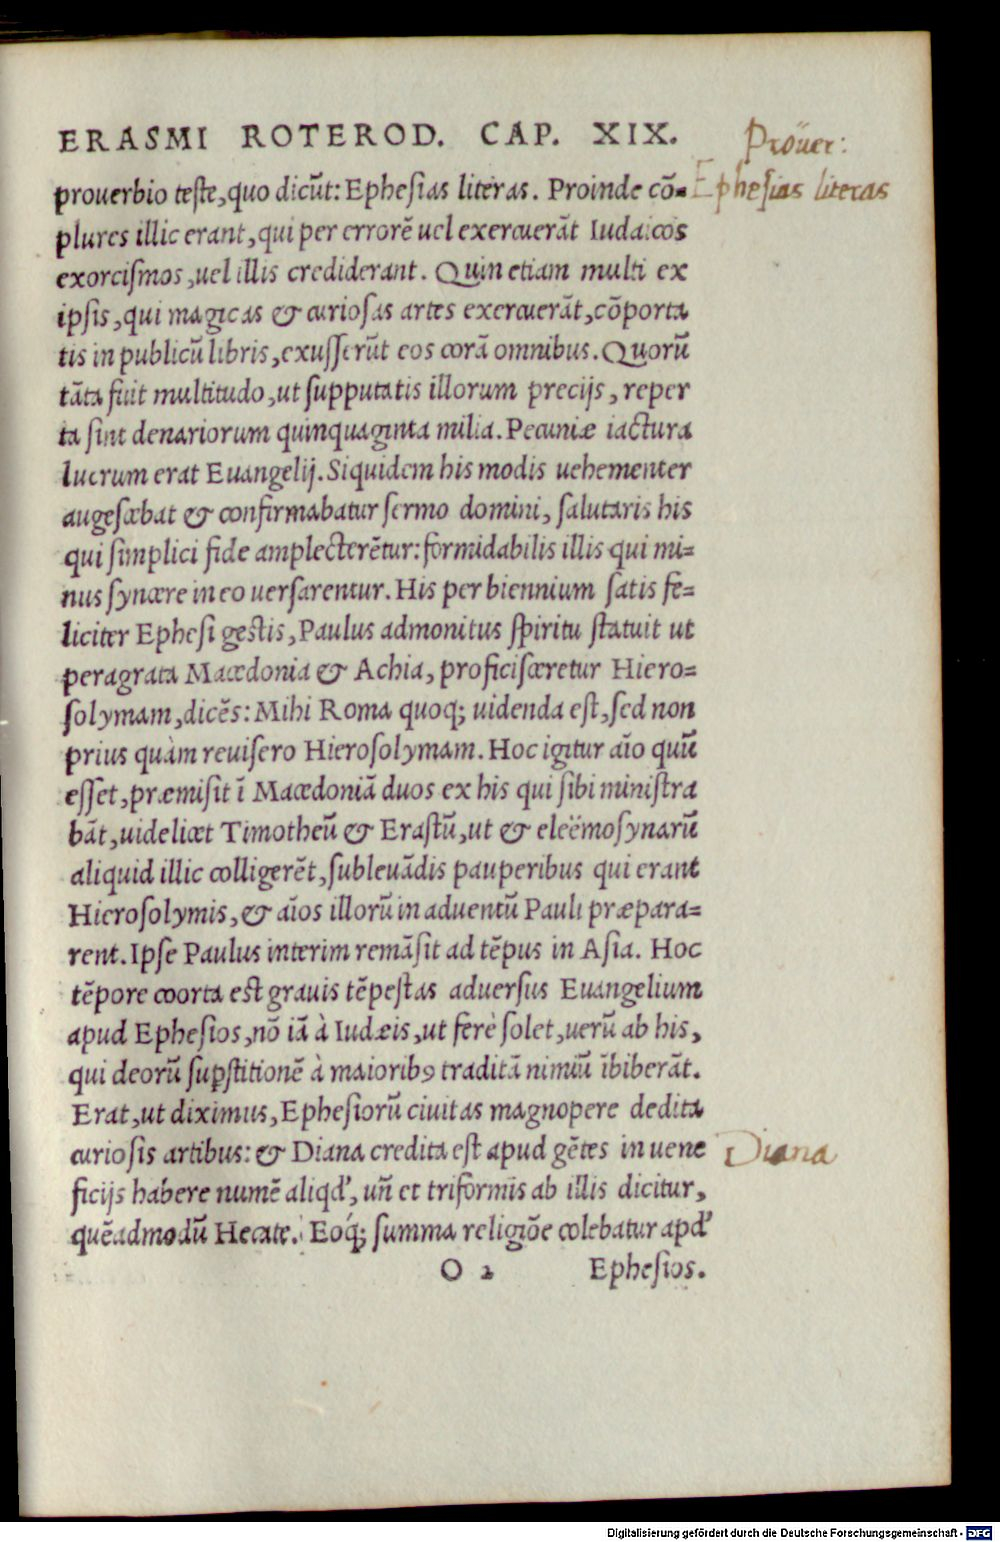 ERASMI ROTEROD. CAP. XIX.
Prouer:
prouerbio teste, quo dicūt: Ephesias literas. Proinde cō=
Ephesias literas
plures illic erant, qui per errorē uel exercuerāt Iudaicos
exorcismos, uel illis crediderant. Quin etiam multi ex
ipsis, qui magicas & curiosas artes exercuerāt, cōporta
tis in publicū libris, exusserūt eos corā omnibus. Quorū
tāta fuit multitudo, ut supputatis illorum precijs, reper
ta sint denariorum quinquaginta milia. Pecuniæ iactura
lucrum erat Euangelij. Siquidem his modis uehementer
augescebat & confirmabatur sermo domini, salutaris his
qui simplici fide amplecterētur: formidabilis illis qui mi=
nus syncere in eo uersarentur. His per biennium satis fe=
liciter Ephesi gestis, Paulus admonitus spiritu statuit ut
peragrata Macedonia & Achia, proficisceretur Hiero=
solymam, dicēs: Mihi Roma quoq; uidenda est, sed non
prius quàm reuisero Hierosolymam. Hoc igitur aīo quū
esset, præmisit ī Macedoniā duos ex his qui sibi ministra
bāt, uidelicet Timotheū & Erastū, ut & eleëmosynarū
aliquid illic colligerēt, subleuādis pauperibus qui erant
Hierosolymis, & aīos illorū in aduentū Pauli præpara=
rent. Ipse Paulus interim remāsit ad tēpus in Asia. Hoc
tēpore coorta est grauis tēpestas aduersus Euangelium
apud Ephesios, nō iā à Iudæis, ut ferè solet, uerū ab his,
qui deorū supstitionē à maiorib9 traditā nimiū ībiberāt.
Erat, ut diximus, Ephesiorū ciuitas magnopere dedita
curiosis artibus: & Diana credita est apud gētes in uene
Diana
ficijs habere numē aliqd', uñ et triformis ab illis dicitur,
quēadmodū Hecate. Eoq́; summa religiōe colebatur apd'
O 2 Ephesios.
Digitalisierung gefördert durch die Deutsche Forschungsgemeinschaft - DFG